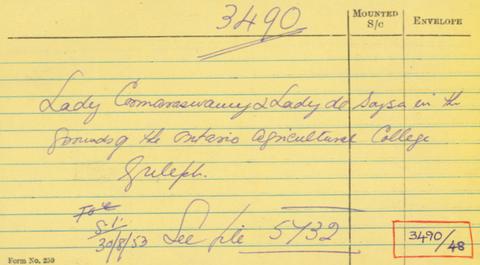 3490
MOUNTED S/c
ENVELOPE
Lady Coomaraswamy & Lady de Soysa in the
grounds of the Ontario Agricultural College
Guleph.
30/8/53 See file 5732
3490/48
Form No. 259